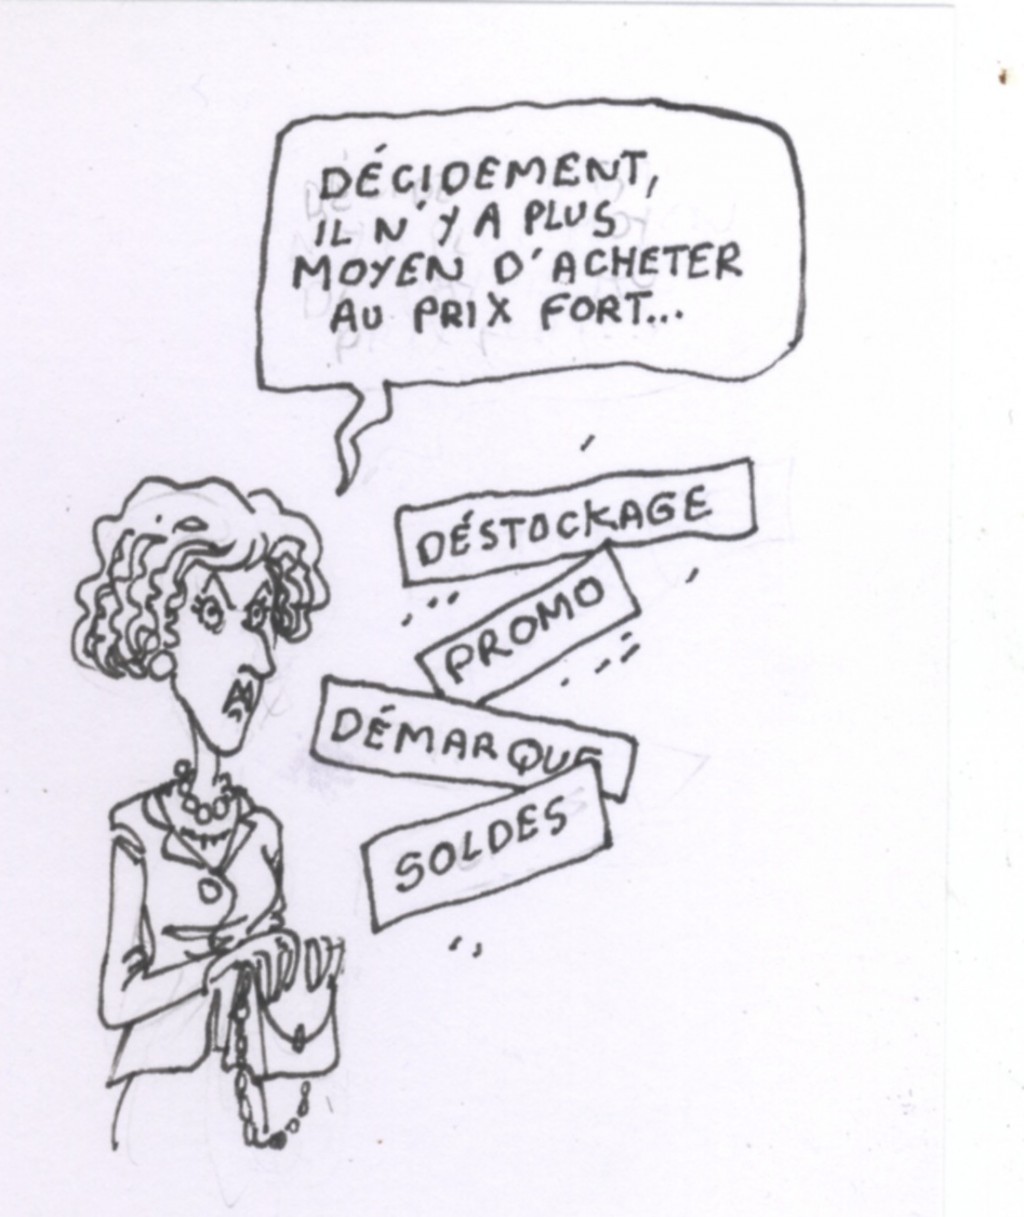 DÉCIDEMENT,
IL N'Y A PLUS
MOYEN D'ACHETER
AU PRIX FORT...
DÉSTOCKAGE
PROMO
DÉMARQUE
SOLDES